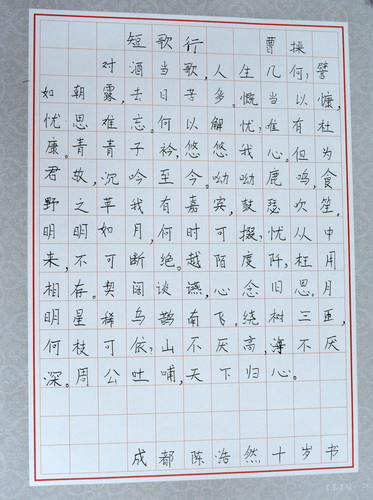 短歌行 曹操
对酒当歌,人生几何?譬
如朝露,去日苦多。慨当以慷,
忧思难忘。何以解忧?唯有杜
康。青青子衿,悠悠我心。但为
君故,沉吟至今。呦呦鹿鸣,食
野之苹。我有嘉宾,鼓瑟吹笙。
明明如月,何时可掇?忧从中
来,不可断绝。越陌度阡,枉用
相存。契阔谈讌,心念旧恩。月
明星稀,乌鹊南飞。绕树三匝,
何枝可依?山不厌高,海不厌
深。周公吐哺,天下归心。
成都陈浩然十岁书